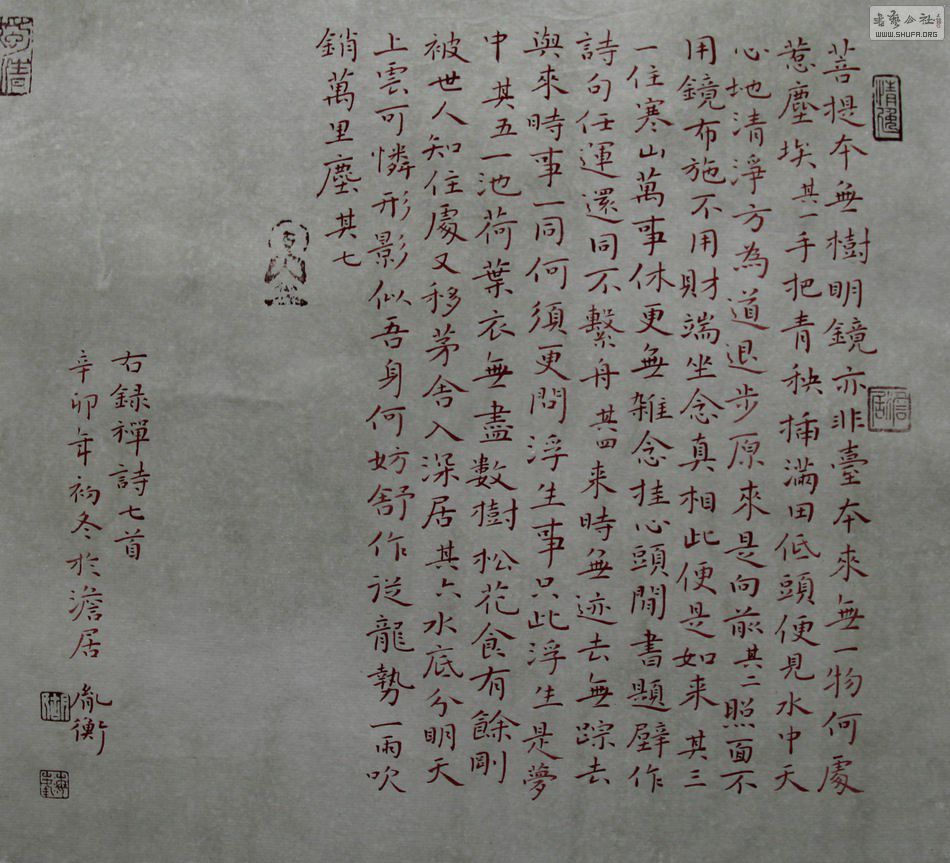 菩提本無樹明鏡亦非臺本來無一物何處
惹塵埃其一手把青秧插滿田低頭便見水中天
心地清淨方為道退步原來是向前其二照面不
用鏡布施不用財端坐念真相此便是如来其三
一住寒山萬事休更無雜念挂心頭閒書題壁作
詩句任運還同不繫舟其四来時無迹去無踪去
與來時事一同何須更問浮生事只此浮生是夢
中其五一池荷葉衣無盡數樹松花食有餘剛
被世人知住處又移茅舍入深居其六水底分明天
上雲可憐形影似吾身何妨舒作從龍勢一雨吹
銷萬里塵其七
右録禪詩七首
辛卯年初冬於澹居
胤衡
WWW.SHUFA.ORG